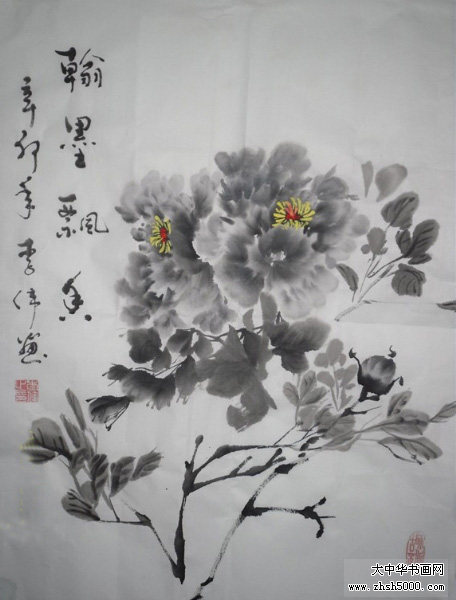 翰墨飄香
辛卯年李伟画
大中华书画网
www.zhsh5000.com